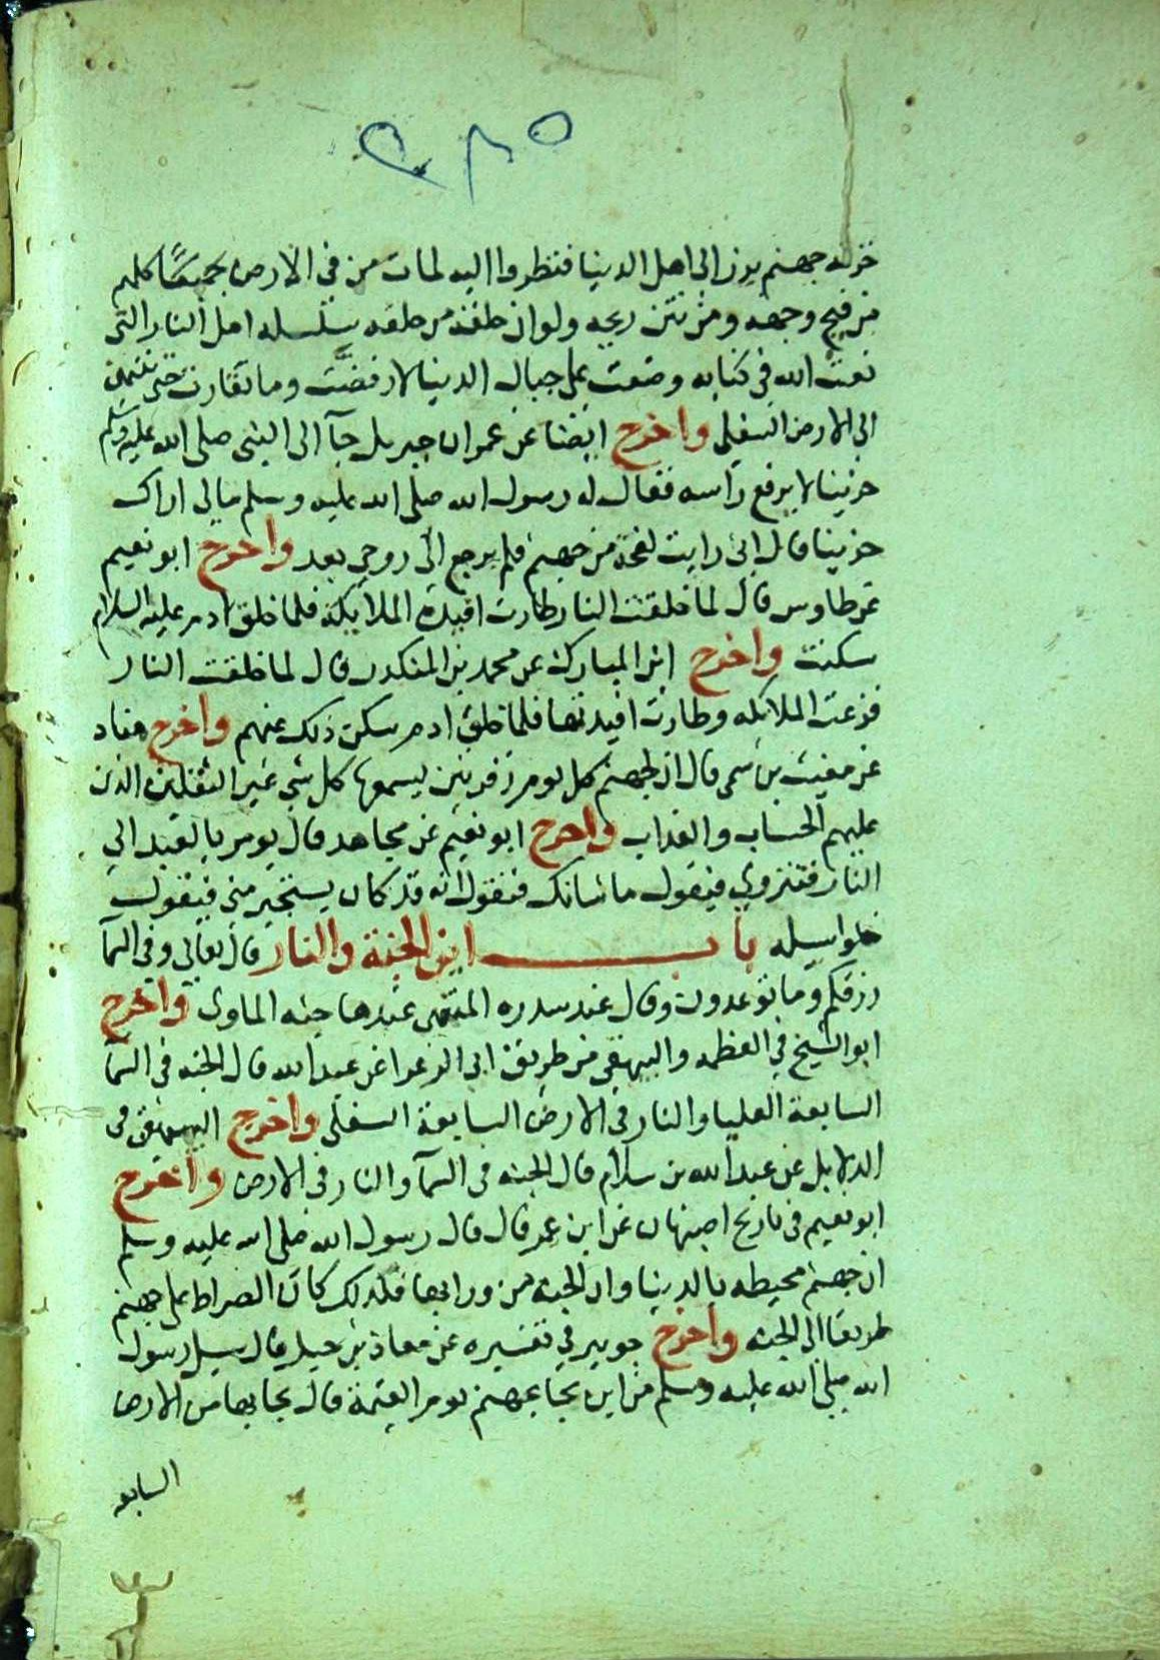 خزنه جهنم برز الى اهل الدنيا فنظروا اليه لمات من في الارض جميعا كلهم
من قبح وجهه ومن نتن ريحه ولو ان حلقه من حلقه سلسله اهل النار التي
نعت الله في كتابه وضعت على جبال الدنيا لارفضت وما تقارت حتى تنتهي
الى الارض السفلى واخرج ايضا عن عمر ان جبريل جآ الى النبى صلى الله عليه وسلم
حزينا لا يرفع راسه فقال له رسول الله صلى الله عليه وسلم مالى اراك
حزينا قال انى رايت لفحة من جهنم فلم يرجع الى روحي بعد واخرج ابو نعيم
عن طاوس قال لما خلقت النار طارت افيدة الملايكة فلما خلق ادم عليه السلام
سكنت واخرج ابن المبارك عن محمد بن المنكدر قال لما خلقت النار
فزعت الملايكه وطارت افيدتها فلما خلق ادم سكن ذلك عنهم واخرج هناد
عن مغيث بن سمى قال ان لجهنم كل يوم زفرتين يسمعها كل شي غير الثقلين الذين
عليهم الحساب والعذاب واخرج ابو نعيم عن مجاهد قال يومر بالعبد الى
النار فتنزوي فيقول ما شانك فتقول انه قد كان يستجير مني فيقول
خلوا سبيله باب اين الجنة والنار قال تعالى وفي السمآ
رزقكم وما توعدون وقال عند سدره المنتهى عندها جنه الماوى واخرج
ابو الشيخ في العظمه والبيهقى من طريق ابى الزعرا عن عبد الله قال الجنه فى السمآ
السابعة العليا والنار في الارض السابعة السفلى واخرج البيهقى فى
الدلايل عن عبد الله بن سلام قال الجنه فى السمآ والنار فى الارض واخرج
ابو نعيم فى تاريخ اصبهان عن ابن عمر قال قال رسول الله صلى الله عليه وسلم
ان جهنم محيطه بالدنيا وان الجنه من ورايها فلذلك كان الصراط على جهنم
طريقا الى الجنه واخرج جويبر في تفسيره عن معاذ بن جبل قال سيل رسول
الله صلى الله عليه وسلم من اين يجا بجهنم يوم القيمة قال يجا بها من الارض
السابعه